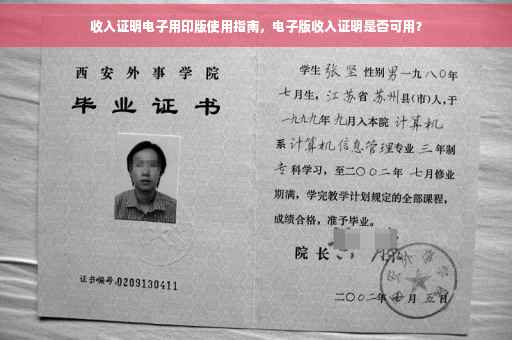 收入证明电子用印版使用指南，电子版收入证明是否可用？
西安外事学院
毕业证书
证书编号:0209130411
学生 张坚 性别 男 一九八〇年
七月生，江苏省 苏州县(市)人,于
一九九九年 九月入本院 计算机
系 计算机信息管理专业 三 年制
专科学习，至二〇〇二年 七月修业
期满，学完教学计划规定的全部课程，
成绩合格，准予毕业。
院长
二〇〇二年 月 五日